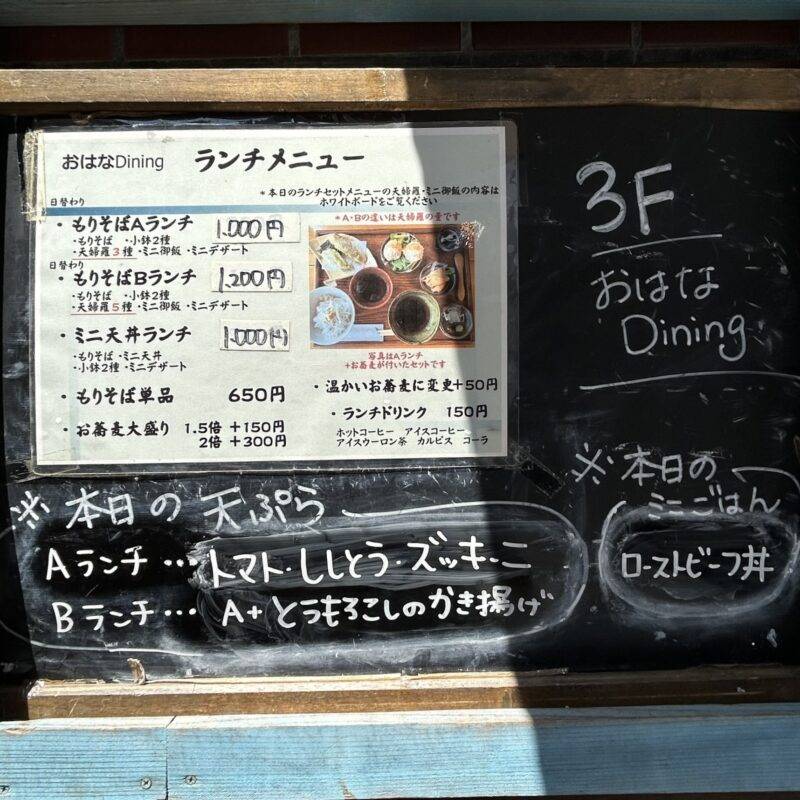 おはなDining ランチメニュー
*本日のランチセットメニューの天婦羅・ミニ御飯の内容は
ホワイトボードをご覧ください
日替わり
・もりそばAランチ 1,000円
・もりそば ・小鉢2種
・天婦羅3種 ・ミニ御飯 ・ミニデザート
日替わり
・もりそばBランチ 1,200円
・もりそば ・小鉢2種
・天婦羅5種 ・ミニ御飯 ・ミニデザート
・ミニ天丼ランチ 1,000円
・もりそば ・ミニ天丼
・小鉢2種 ・ミニデザート
・もりそば単品 650円
・お蕎麦大盛り 1.5倍 +150円
2倍 +300円
*A・Bの違いは天婦羅の量です
写真はAランチ
+お蕎麦が付いたセットです
・温かいお蕎麦に変更+50円
・ランチドリンク 150円
ホットコーヒー アイスコーヒー
アイスウーロン茶 カルピス コーラ
3F
おはな
Dining
※本日の天ぷら
Aランチ… トマト・ししとう・ズッキーニ
Bランチ… A+とうもろこしのかき揚げ
※本日の
ミニごはん
ローストビーフ丼